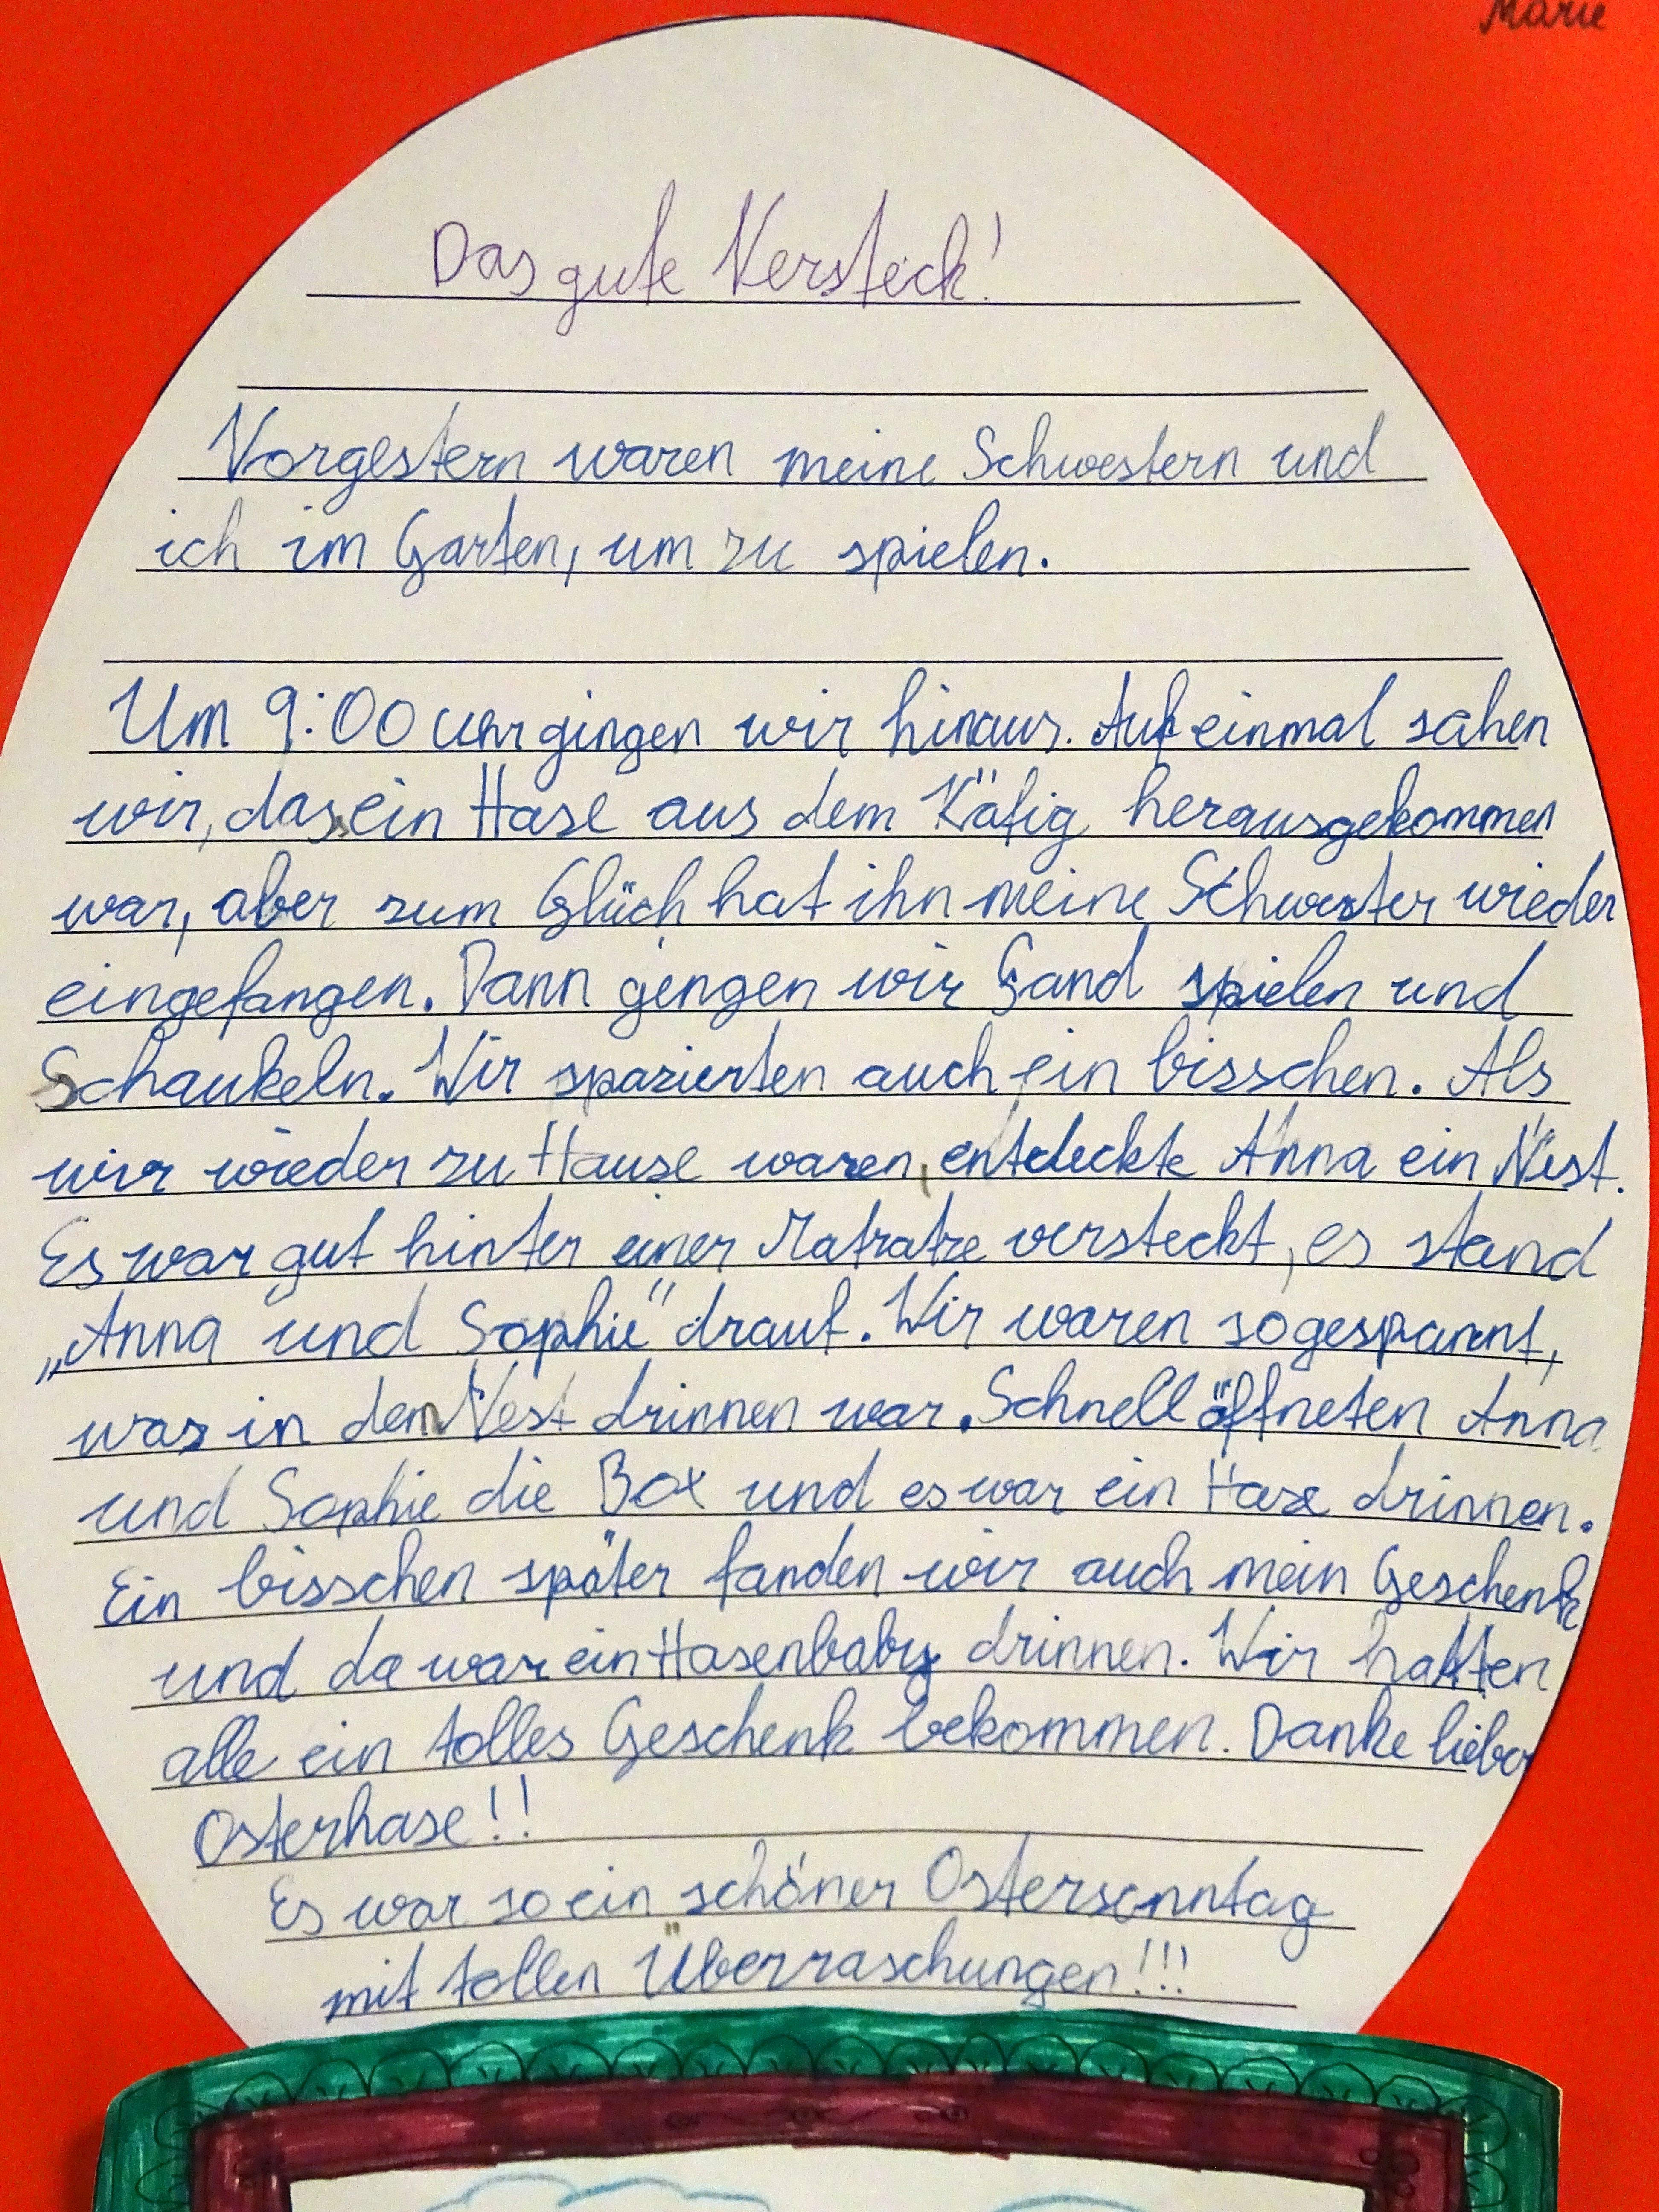 Marie
Das gute Versteck!
Vorgestern waren meine Schwestern und
ich im Garten, um zu spielen.
Um 9:00 uhr gingen wir hinaus. Auf einmal sahen
wir, dass ein Hase aus dem Käfig herausgekommen
war, aber zum Glück hat ihn meine Schwester wieder
eingefangen. Dann gengen wir Sand spielen und
Schaukeln. Wir spazierten auch ein bisschen. Als
wir wieder zu Hause waren, entdeckte Anna ein Nest.
Es war gut hinter einer Matratze versteckt, es stand
„Anna und Sophie" drauf. Wir waren so gespannt,
was in dem Nest drinnen war. Schnell öffneten Anna
und Sophie die Box und es war ein Hase drinnen.
Ein bisschen später fanden wir auch mein Geschenk
und da war ein Hasenbaby drinnen. Wir hatten
alle ein tolles Geschenk bekommen. Danke lieber
Osterhase!!
Es war so ein schöner Ostersonntag
mit tollen Überraschungen!!!